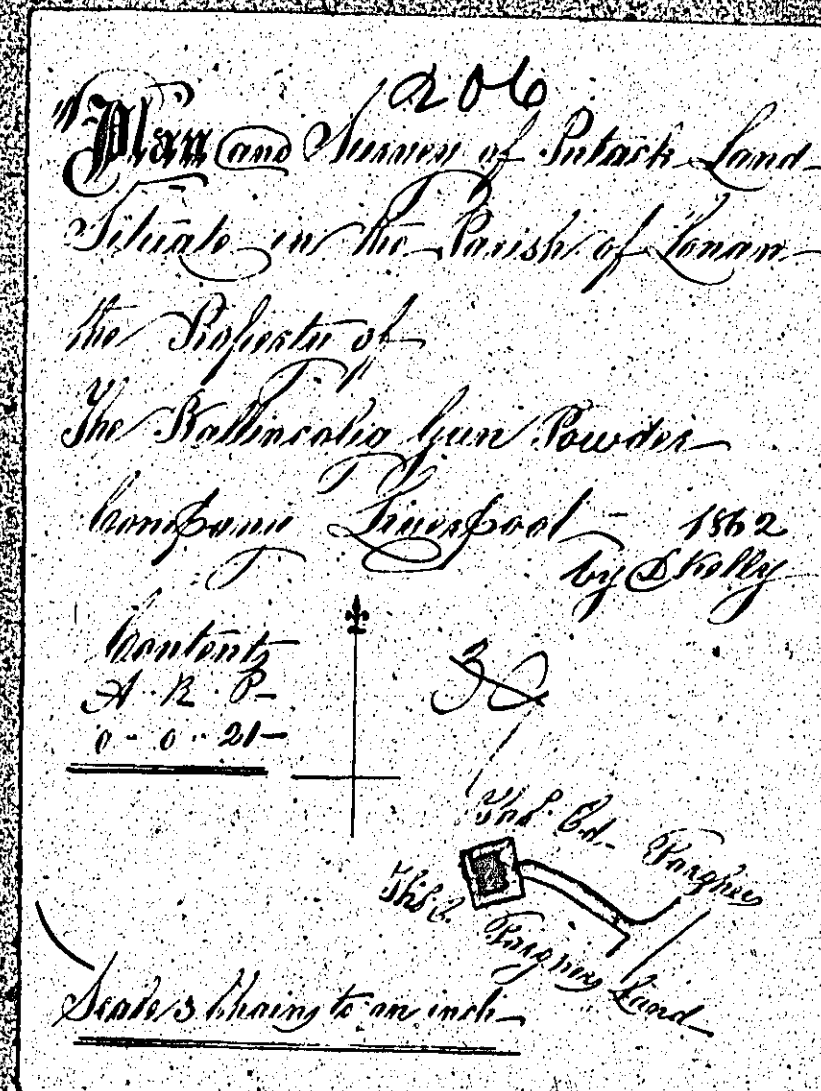 206
Plan and Survey of Intack Land
Situate in the Parish of Lonan
the Property of
The Ballincolig Gun Powder
Company Liverpool - 1862
by D Kelly
Contents
A. R. P
0 - 0 - 21
Land
Scale 3 Chains to an inch